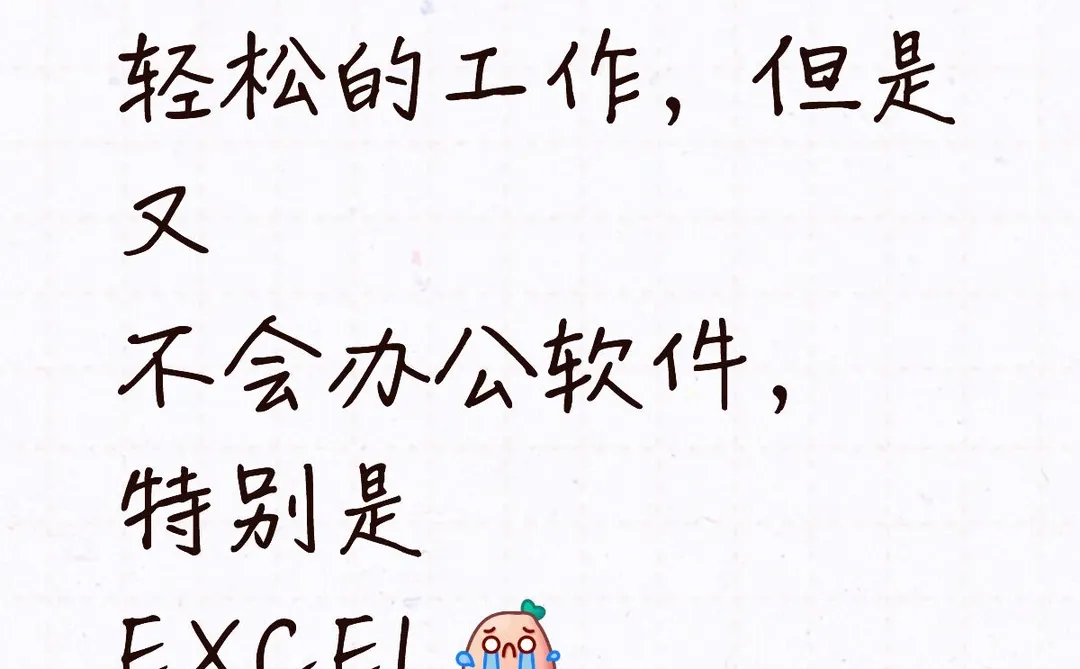 轻松的工作，但是
又
不会办公软件，
特别是
EXCEL